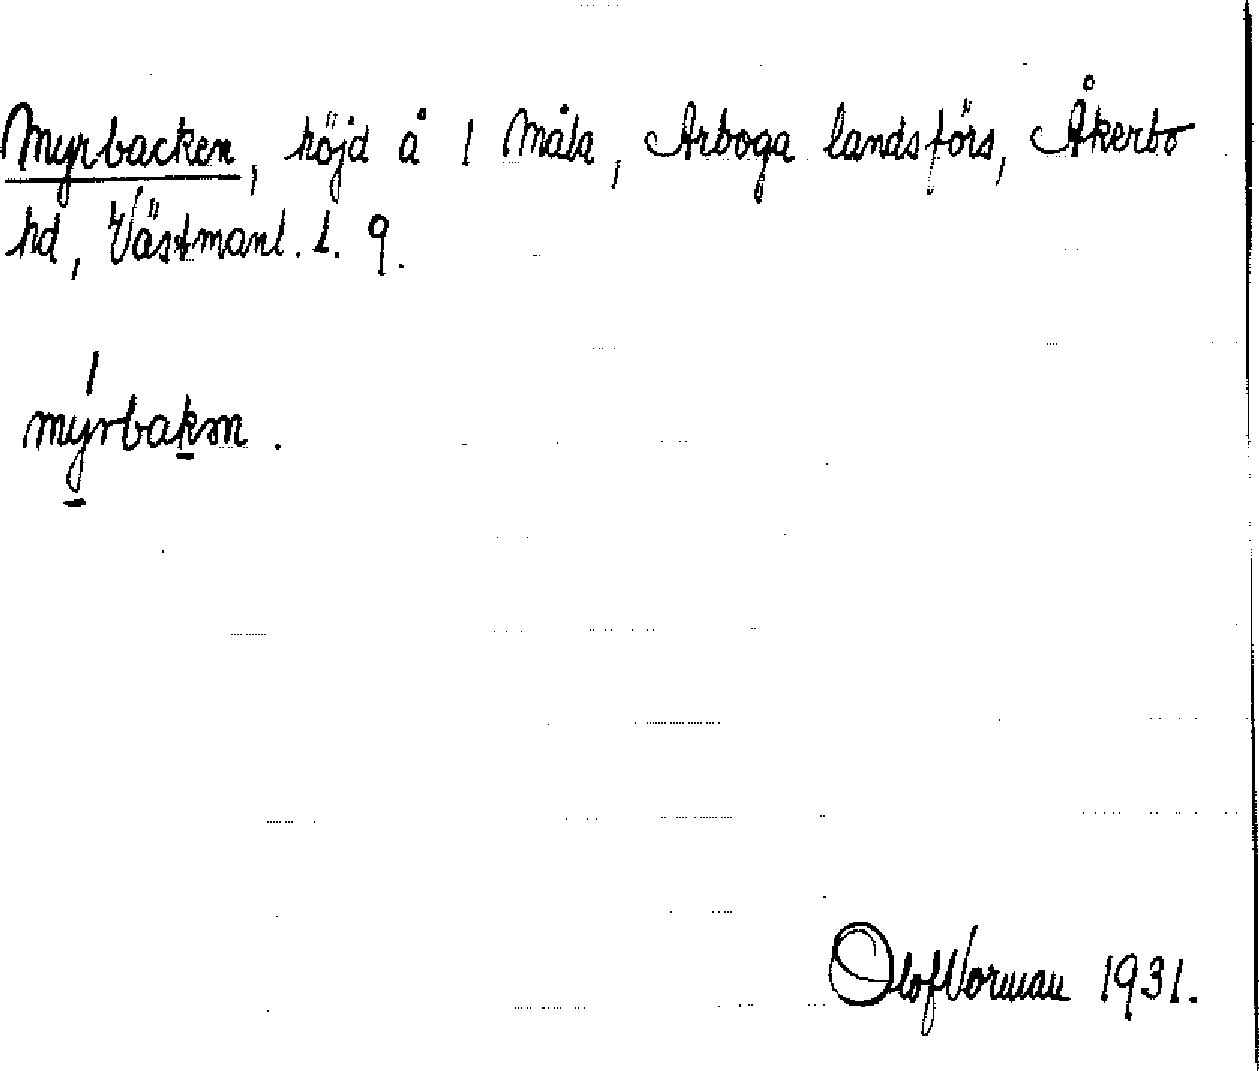 Myrbacken, höjd å 1 Måla, Arboga landsförs, Åkerbo
hd, Västmanl. l. 9.
mýrbakɷn.
Olof Norman 1931.